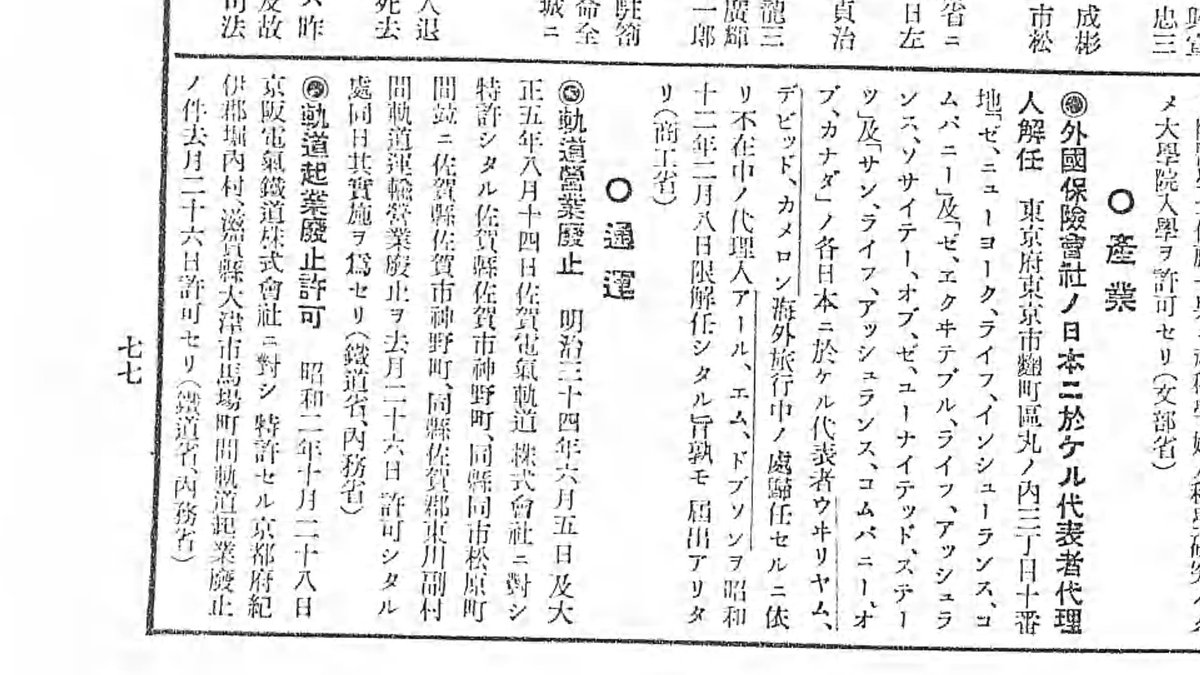 成彬
市松
省ニ
日左
貞治
龍三
廣輝
一郎
駐箚
命全
城ニ
人退
死去
昨
及故
司法
忠三
メ大學院入學ヲ許可セリ（文部省）
〇產業
◉外國保險會社ノ日本ニ於ケル代表者代理
人解任　東京府東京市麴町區丸ノ内三丁目十番
地「ゼ、ニューヨーク、ライフ、インシューランス、コ
ムパニー」及「ゼ、エクヰテブル、ライフ、アッシュラ
ンス、ソサイテー、オブ、ゼ、ユーナイテッド、ステー
ツ」及「サン、ライフ、アッシュランス、コムパニー、オ
ブ、カナダ」ノ各日本ニ於ケル代表者ウヰリヤム、
デビッド、カメロン海外旅行中ノ處歸任セルニ依
リ不在中ノ代理人アール、エム、ドブソンヲ昭和
十二年二月八日限解任シタル旨孰モ屆出アリタ
リ（商工省）
〇通運
◉軌道營業廢止　明治三十四年六月五日及大
正五年八月十四日佐賀電氣軌道株式會社ニ對シ
特許シタル佐賀縣佐賀市神野町、同縣同市松原町
間竝ニ佐賀縣佐賀市神野町、同縣佐賀郡東川副村
間軌道運輸營業廢止ヲ去月二十六日許可シタル
處同日其實施ヲ爲セリ（鐵道省、内務省）
◉軌道起業廢止許可　昭和二年十月二十八日
京阪電氣鐵道株式會社ニ對シ特許セル京都府紀
伊郡堀内村、滋賀縣大津市馬場町間軌道起業廢止
ノ件去月二十六日許可セリ（鐵道省、内務省）
七七